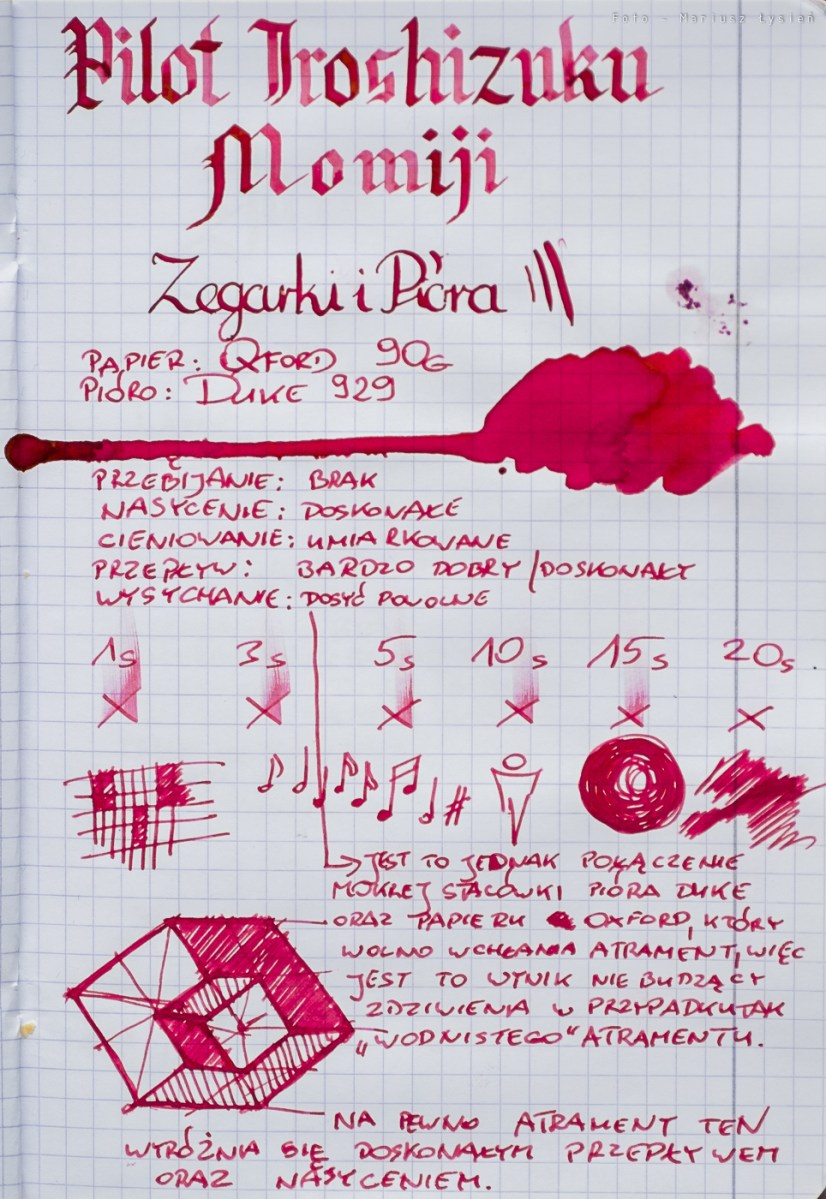 Foto - Mariusz Łysień
Pilot Iroshizuku
Momiji
Zegarki i Pióra
PAPIER: OXFORD 90G
PIÓRO: DUKE 929
PRZEBIJANIE: BRAK
NASYCENIE: DOSKONAŁE
CIENIOWANIE: UMIARKOWANE
PRZEPŁYW: BARDZO DOBRY/DOSKONAŁY
WYSYCHANIE: DOSYĆ POWOLNE
1s 3s 5s 10s 15s 20s
JEST TO JEDNAK POŁĄCZENIE
MOKREJ STALÓWKI PIÓRA DUKE
ORAZ PAPIERU OXFORD, KTÓRY
WOLNO WCHŁANIA ATRAMENT, WIĘC
JEST TO WYNIK NIE BUDZĄCY
ZDZIWIENIA W PRZYPADKU TAK
„WODNISTEGO" ATRAMENTU.
NA PEWNO ATRAMENT TEN
WYRÓŻNIA SIĘ DOSKONAŁYM PRZEPŁYWEM
ORAZ NASYCENIEM.